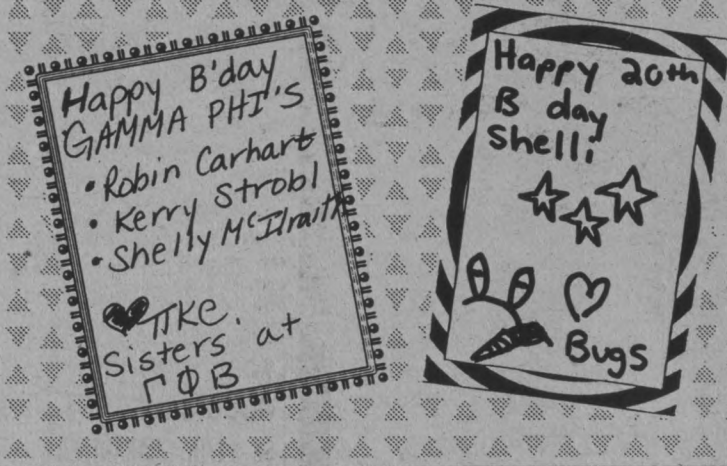 Happy B'day
GAMMA PHI'S
• Robin Carhart
• Kerry Strobl
• Shelly McIlraith
♥ πKE
Sisters at
ΓΦΒ
Happy 20th
B day
Shelli
♡
Bugs